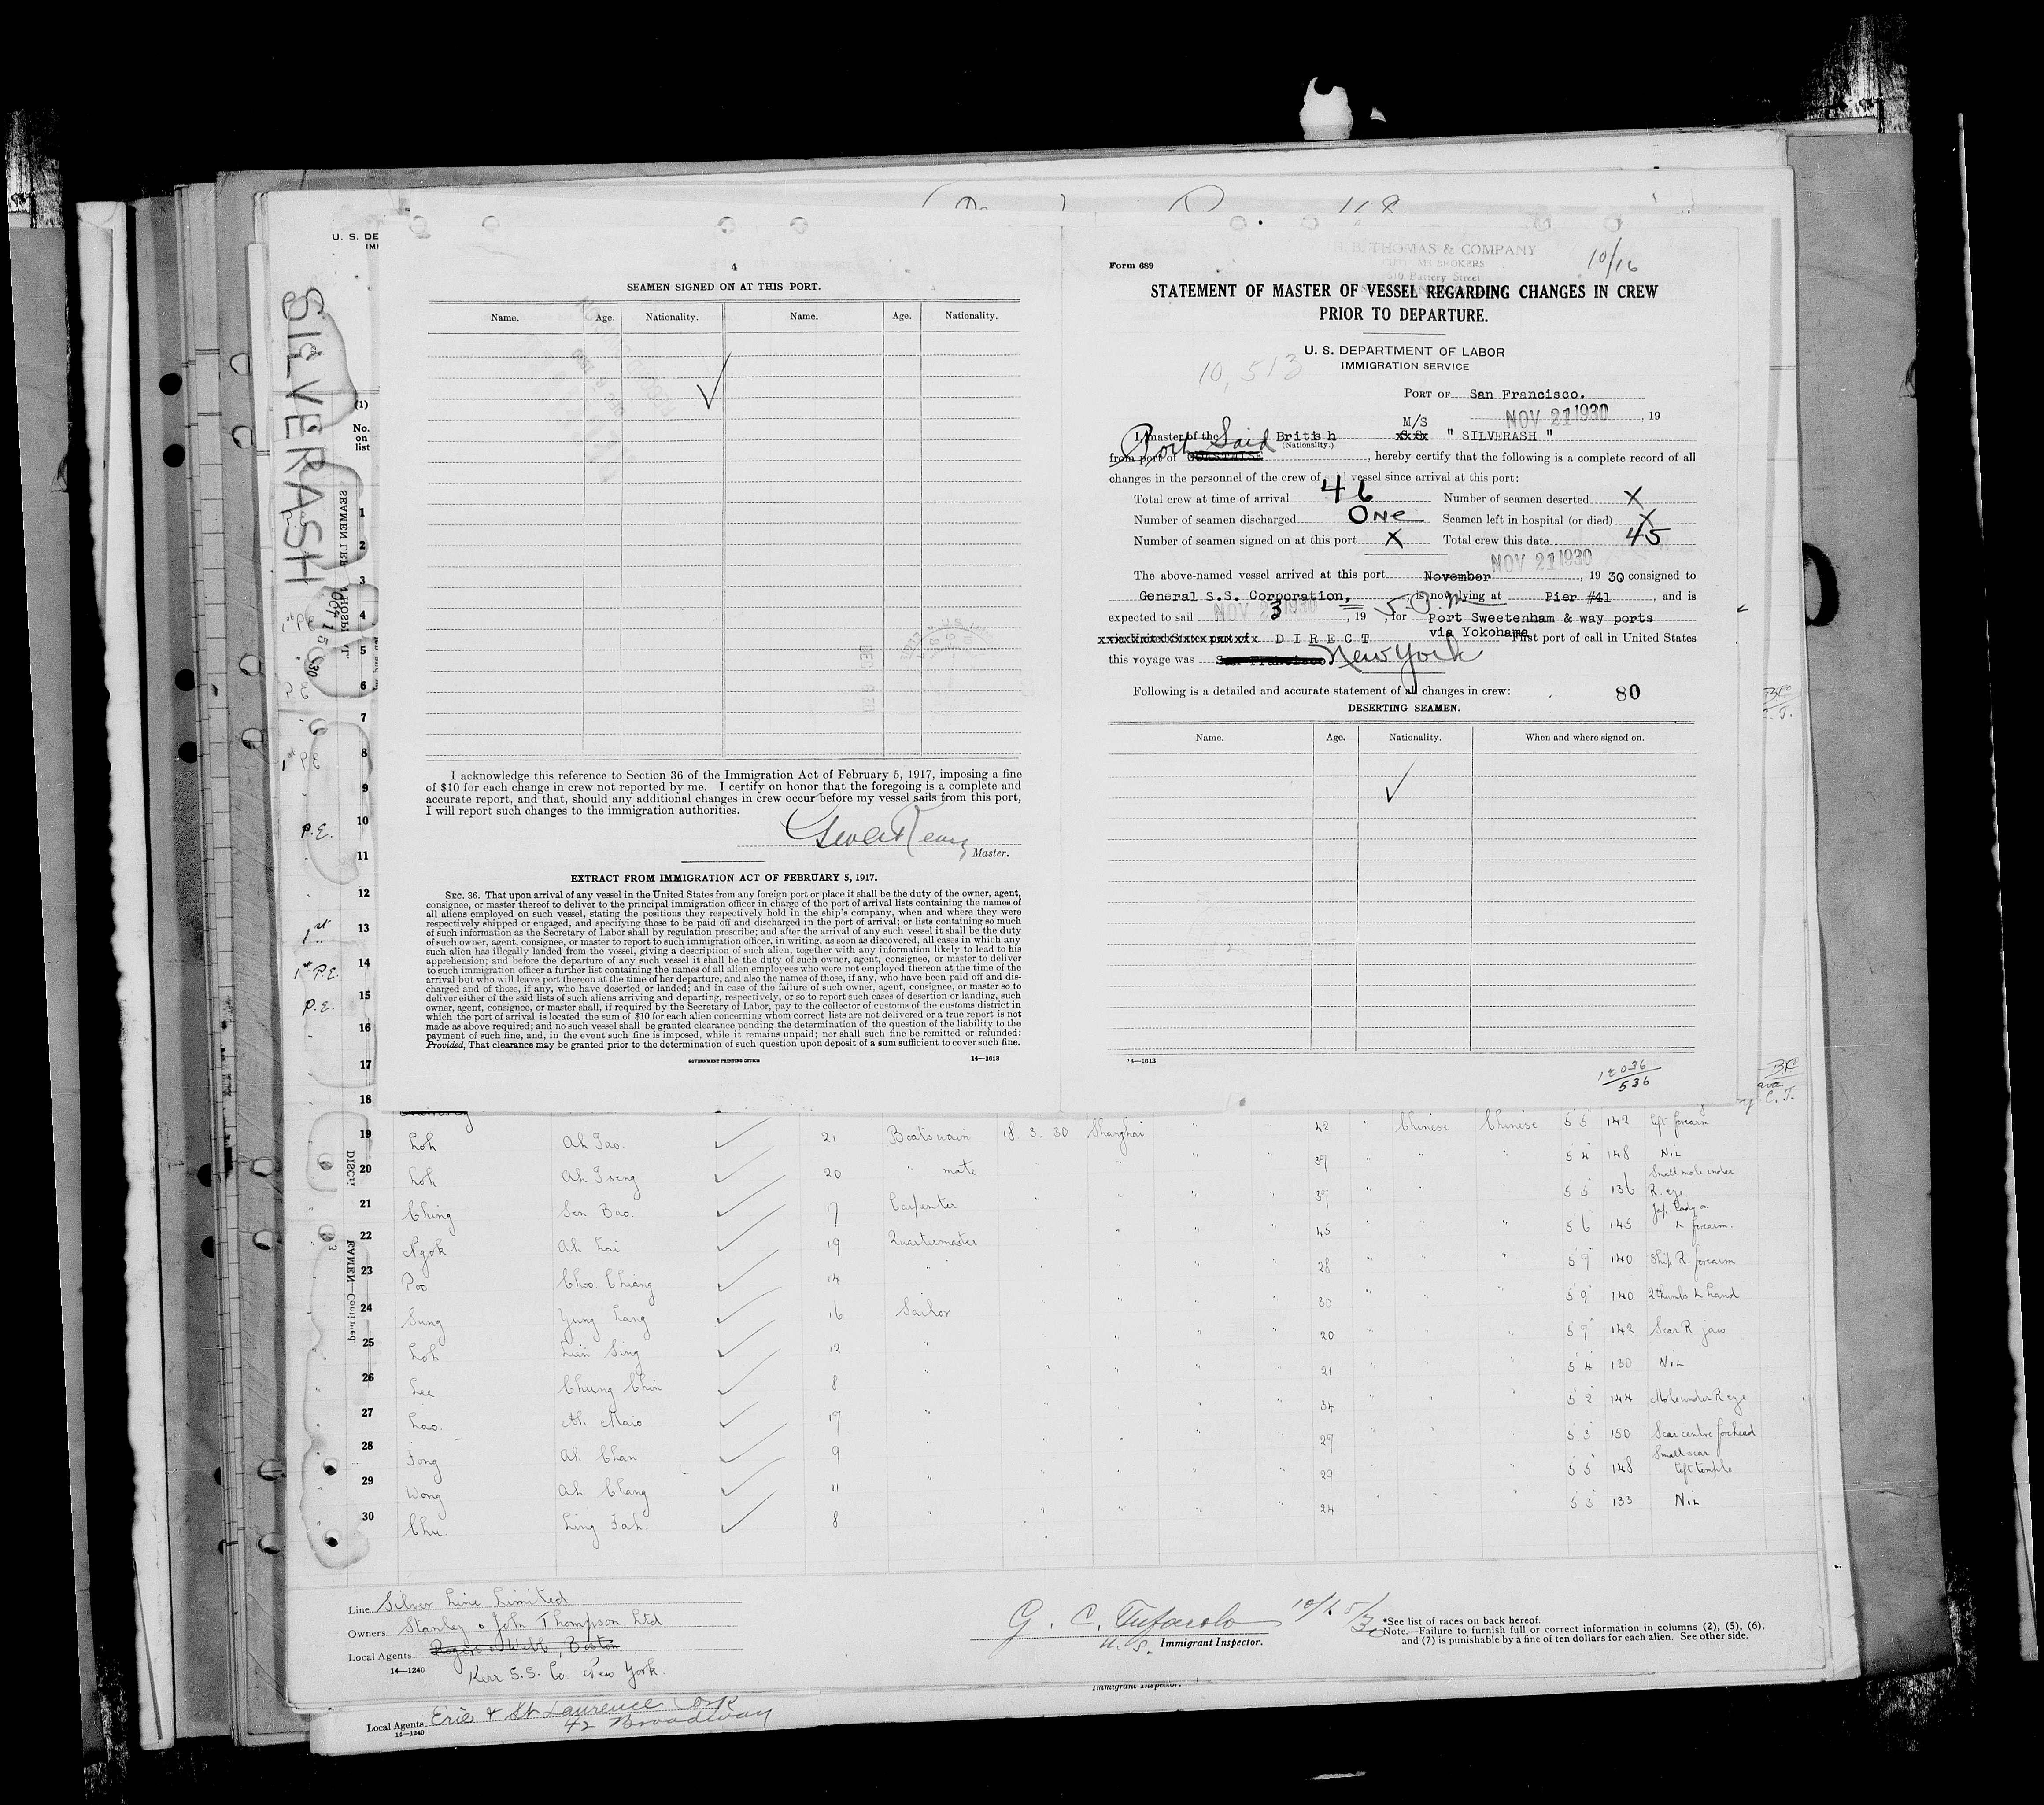 SILVERASH
U. S. DE
(1)
No.
on
list
1
2
3
4
5
6
7
8
9
10
11
12
13
14
15
16
17
18
P.E.
1st
1st P.E.
P.E.
4
SEAMEN SIGNED ON AT THIS PORT.
Name. Age. Nationality. Name. Age. Nationality.
I acknowledge this reference to Section 36 of the Immigration Act of February 5, 1917, imposing a fine
of $10 for each change in crew not reported by me. I certify on honor that the foregoing is a complete and
accurate report, and that, should any additional changes in crew occur before my vessel sails from this port,
I will report such changes to the immigration authorities.
Master.
EXTRACT FROM IMMIGRATION ACT OF FEBRUARY 5, 1917.
SEC. 36. That upon arrival of any vessel in the United States from any foreign port or place it shall be the duty of the owner, agent,
consignee, or master thereof to deliver to the principal immigration officer in charge of the port of arrival lists containing the names of
all aliens employed on such vessel, stating the positions they respectively hold in the ship's company, when and where they were
respectively shipped or engaged, and specifying those to be paid off and discharged in the port of arrival; or lists containing so much
of such information as the Secretary of Labor shall by regulation prescribe; and after the arrival of any such vessel it shall be the duty
of such owner, agent, consignee, or master to report to such immigration officer, in writing, as soon as discovered, all cases in which any
such alien has illegally landed from the vessel, giving a description of such alien, together with any information likely to lead to his
apprehension; and before the departure of any such vessel it shall be the duty of such owner, agent, consignee, or master to deliver
to such immigration officer a further list containing the names of all alien employees who were not employed thereon at the time of the
arrival but who will leave port thereon at the time of her departure, and also the names of those, if any, who have been paid off and dis-
charged and of those, if any, who have deserted or landed; and in case of the failure of such owner, agent, consignee, or master so to
deliver either of the said lists of such aliens arriving and departing, respectively, or so to report such cases of desertion or landing, such
owner, agent, consignee, or master shall, if required by the Secretary of Labor, pay to the collector of customs of the customs district in
which the port of arrival is located the sum of $10 for each alien concerning whom correct lists are not delivered or a true report is not
made as above required; and no such vessel shall be granted clearance pending the determination of the question of the liability to the
payment of such fine, and, in the event such fine is imposed, while it remains unpaid; nor shall such fine be remitted or refunded:
Provided, That clearance may be granted prior to the determination of such question upon deposit of a sum sufficient to cover such fine.
GOVERNMENT PRINTING OFFICE 14—1613
THOMAS & COMPANY
Battery Street
10/16
Form 689
STATEMENT OF MASTER OF VESSEL REGARDING CHANGES IN CREW
PRIOR TO DEPARTURE.
U. S. DEPARTMENT OF LABOR
IMMIGRATION SERVICE
10,513
PORT OF San Francisco.
NOV 21 1930, 19
I, master of the British M/S " SILVERASH "
(Nationality.)
Port Said
from port of , hereby certify that the following is a complete record of all
changes in the personnel of the crew of vessel since arrival at this port:
Total crew at time of arrival 46 Number of seamen deserted X
Number of seamen discharged One Seamen left in hospital (or died) X
Number of seamen signed on at this port X Total crew this date 45
NOV 21 1930
The above-named vessel arrived at this port November , 19 30 consigned to
General S.S. Corporation, , is now lying at Pier #41 , and is
expected to sail NOV 23 1930 , 19 5 P.M , for Port Sweetenham & way ports
via Yokohama
DIRECT First port of call in United States
this voyage was San Francisco New York
Following is a detailed and accurate statement of all changes in crew: 80
DESERTING SEAMEN.
Name. Age. Nationality. When and where signed on.
14—1613
536
19 Loh Ah Tao. 21 Boatswain 18. 3. 30 Shanghai " " 42 " Chinese Chinese 5 5 142 left forearm
20 Loh Ah Tseng 20 " mate " " 37 " " 5 4 148 Nil
21 Ching Sen Bao. 17 Carpenter " " " 37 " " " 5 5 136 Small mole under R. eye.
22 Ngok Ah Lai 19 Quartermaster " " " 45 " " " 5 6 145 Jap. Lady on L forearm.
23 Poo Choo. Chiang 14 " " " " 28 " " " 5 9 140 Ship R. forearm
24 Sung Yung Lang 16 Sailor " " " 30 " " " 5 9 140 2 thumbs L hand
25 Loh Lien Sing 12 " " " " 20 " " " 5 9 142 Scar R jaw
26 Lee Chung Chin 8 " " " " 21 " " " 5 4 130 Nil
27 Lao. Ah Maio 17 " " " " 34 " " " 5 2 144 Mole under R eye
28 Fong Ah Chan 9 " " " " 29 " " " 5 3 150 Scar centre forehead
29 Wong Ah Chang 11 " " " " 29 " " " 5 5 148 Small scar left temple
30 Chu. Ling Fah. 8 " " " " 24 " " " 5 3 133 Nil
Line Silver Line Limited
Owners Stanley & John Thompson Ltd
Local Agents Rogers & Webb, Boston
14—1240
Kerr S.S. Co. New York.
G. C. 10/15/30
U.S. Immigrant Inspector.
*See list of races on back hereof.
Note.—Failure to furnish full or correct information in columns (2), (5), (6),
and (7) is punishable by a fine of ten dollars for each alien. See other side.
Immigrant Inspector.
Local Agents Erie & St Laurence Corp
14—1240
42 Broadway